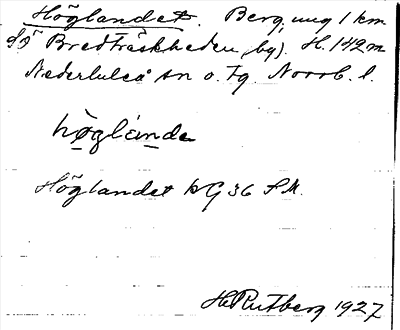 Höglandet. Berg, ung 1 km
SÖ Bredträskheden, by). H. 142 m
Nederluleå sn o. tg. Norrb. l.
höglande
Höglandet KG 36 SM.
H Rutberg 1927